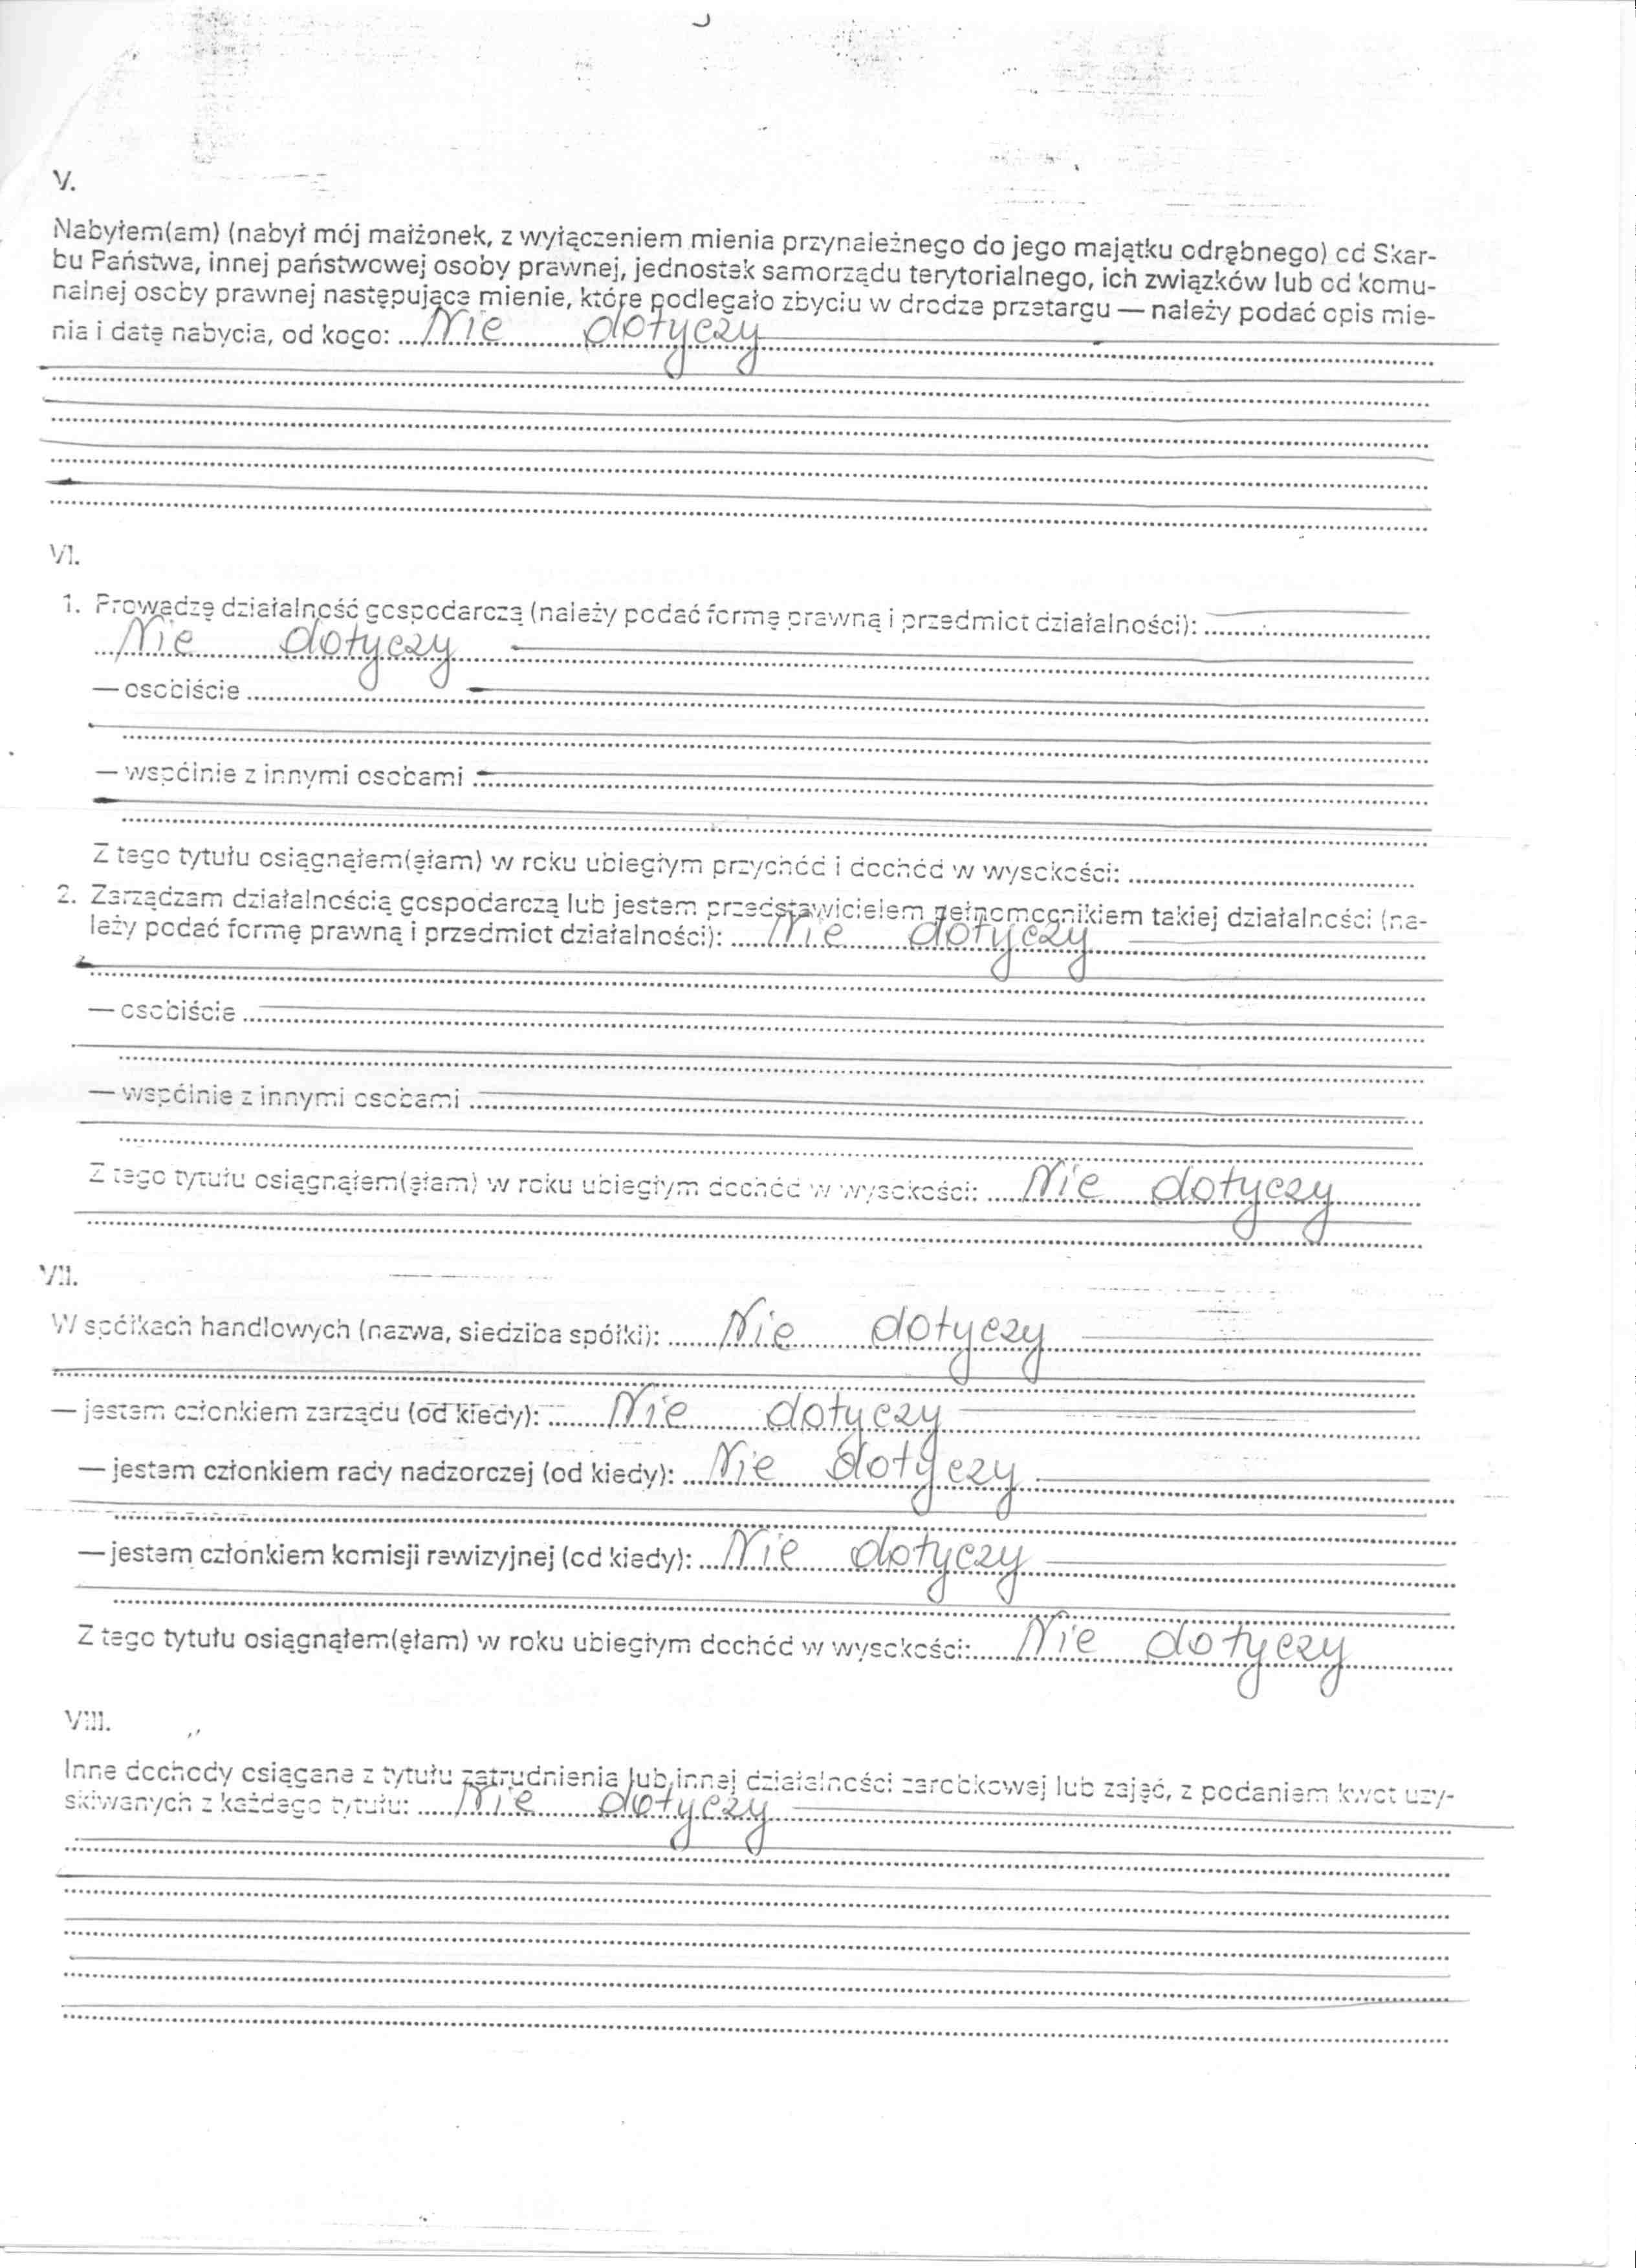 V.
Nabyłem(am) (nabył mój małżonek, z wyłączeniem mienia przynależnego do jego majątku odrębnego) od Skar-
bu Państwa, innej państwowej osoby prawnej, jednostek samorządu terytorialnego, ich związków lub od komu-
nalnej osoby prawnej następujące mienie, które podlegało zbyciu w drodze przetargu — należy podać opis mie-
nia i datę nabycia, od kogo: Nie dotyczy
VI.
1. Prowadzę działalność gospodarczą (należy podać formę prawną i przedmiot działalności):
Nie dotyczy
— osobiście
— wspólnie z innymi osobami
Z tego tytułu osiągnąłem(ęłam) w roku ubiegłym przychód i dochód w wysokości:
2. Zarządzam działalnością gospodarczą lub jestem przedstawicielem pełnomocnikiem takiej działalności (na-
leży podać formę prawną i przedmiot działalności): Nie dotyczy
— osobiście
— wspólnie z innymi osobami
Z tego tytułu osiągnąłem(ęłam) w roku ubiegłym dochód w wysokości: Nie dotyczy
VII.
W spółkach handlowych (nazwa, siedziba spółki): Nie dotyczy
— jestem członkiem zarządu (od kiedy): Nie dotyczy
— jestem członkiem rady nadzorczej (od kiedy): Nie dotyczy
— jestem członkiem komisji rewizyjnej (od kiedy): Nie dotyczy
Z tego tytułu osiągnąłem(ęłam) w roku ubiegłym dochód w wysokości: Nie dotyczy
VIII.
Inne dochody osiągane z tytułu zatrudnienia lub innej działalności zarobkowej lub zajęć, z podaniem kwot uzy-
skiwanych z każdego tytułu: Nie dotyczy